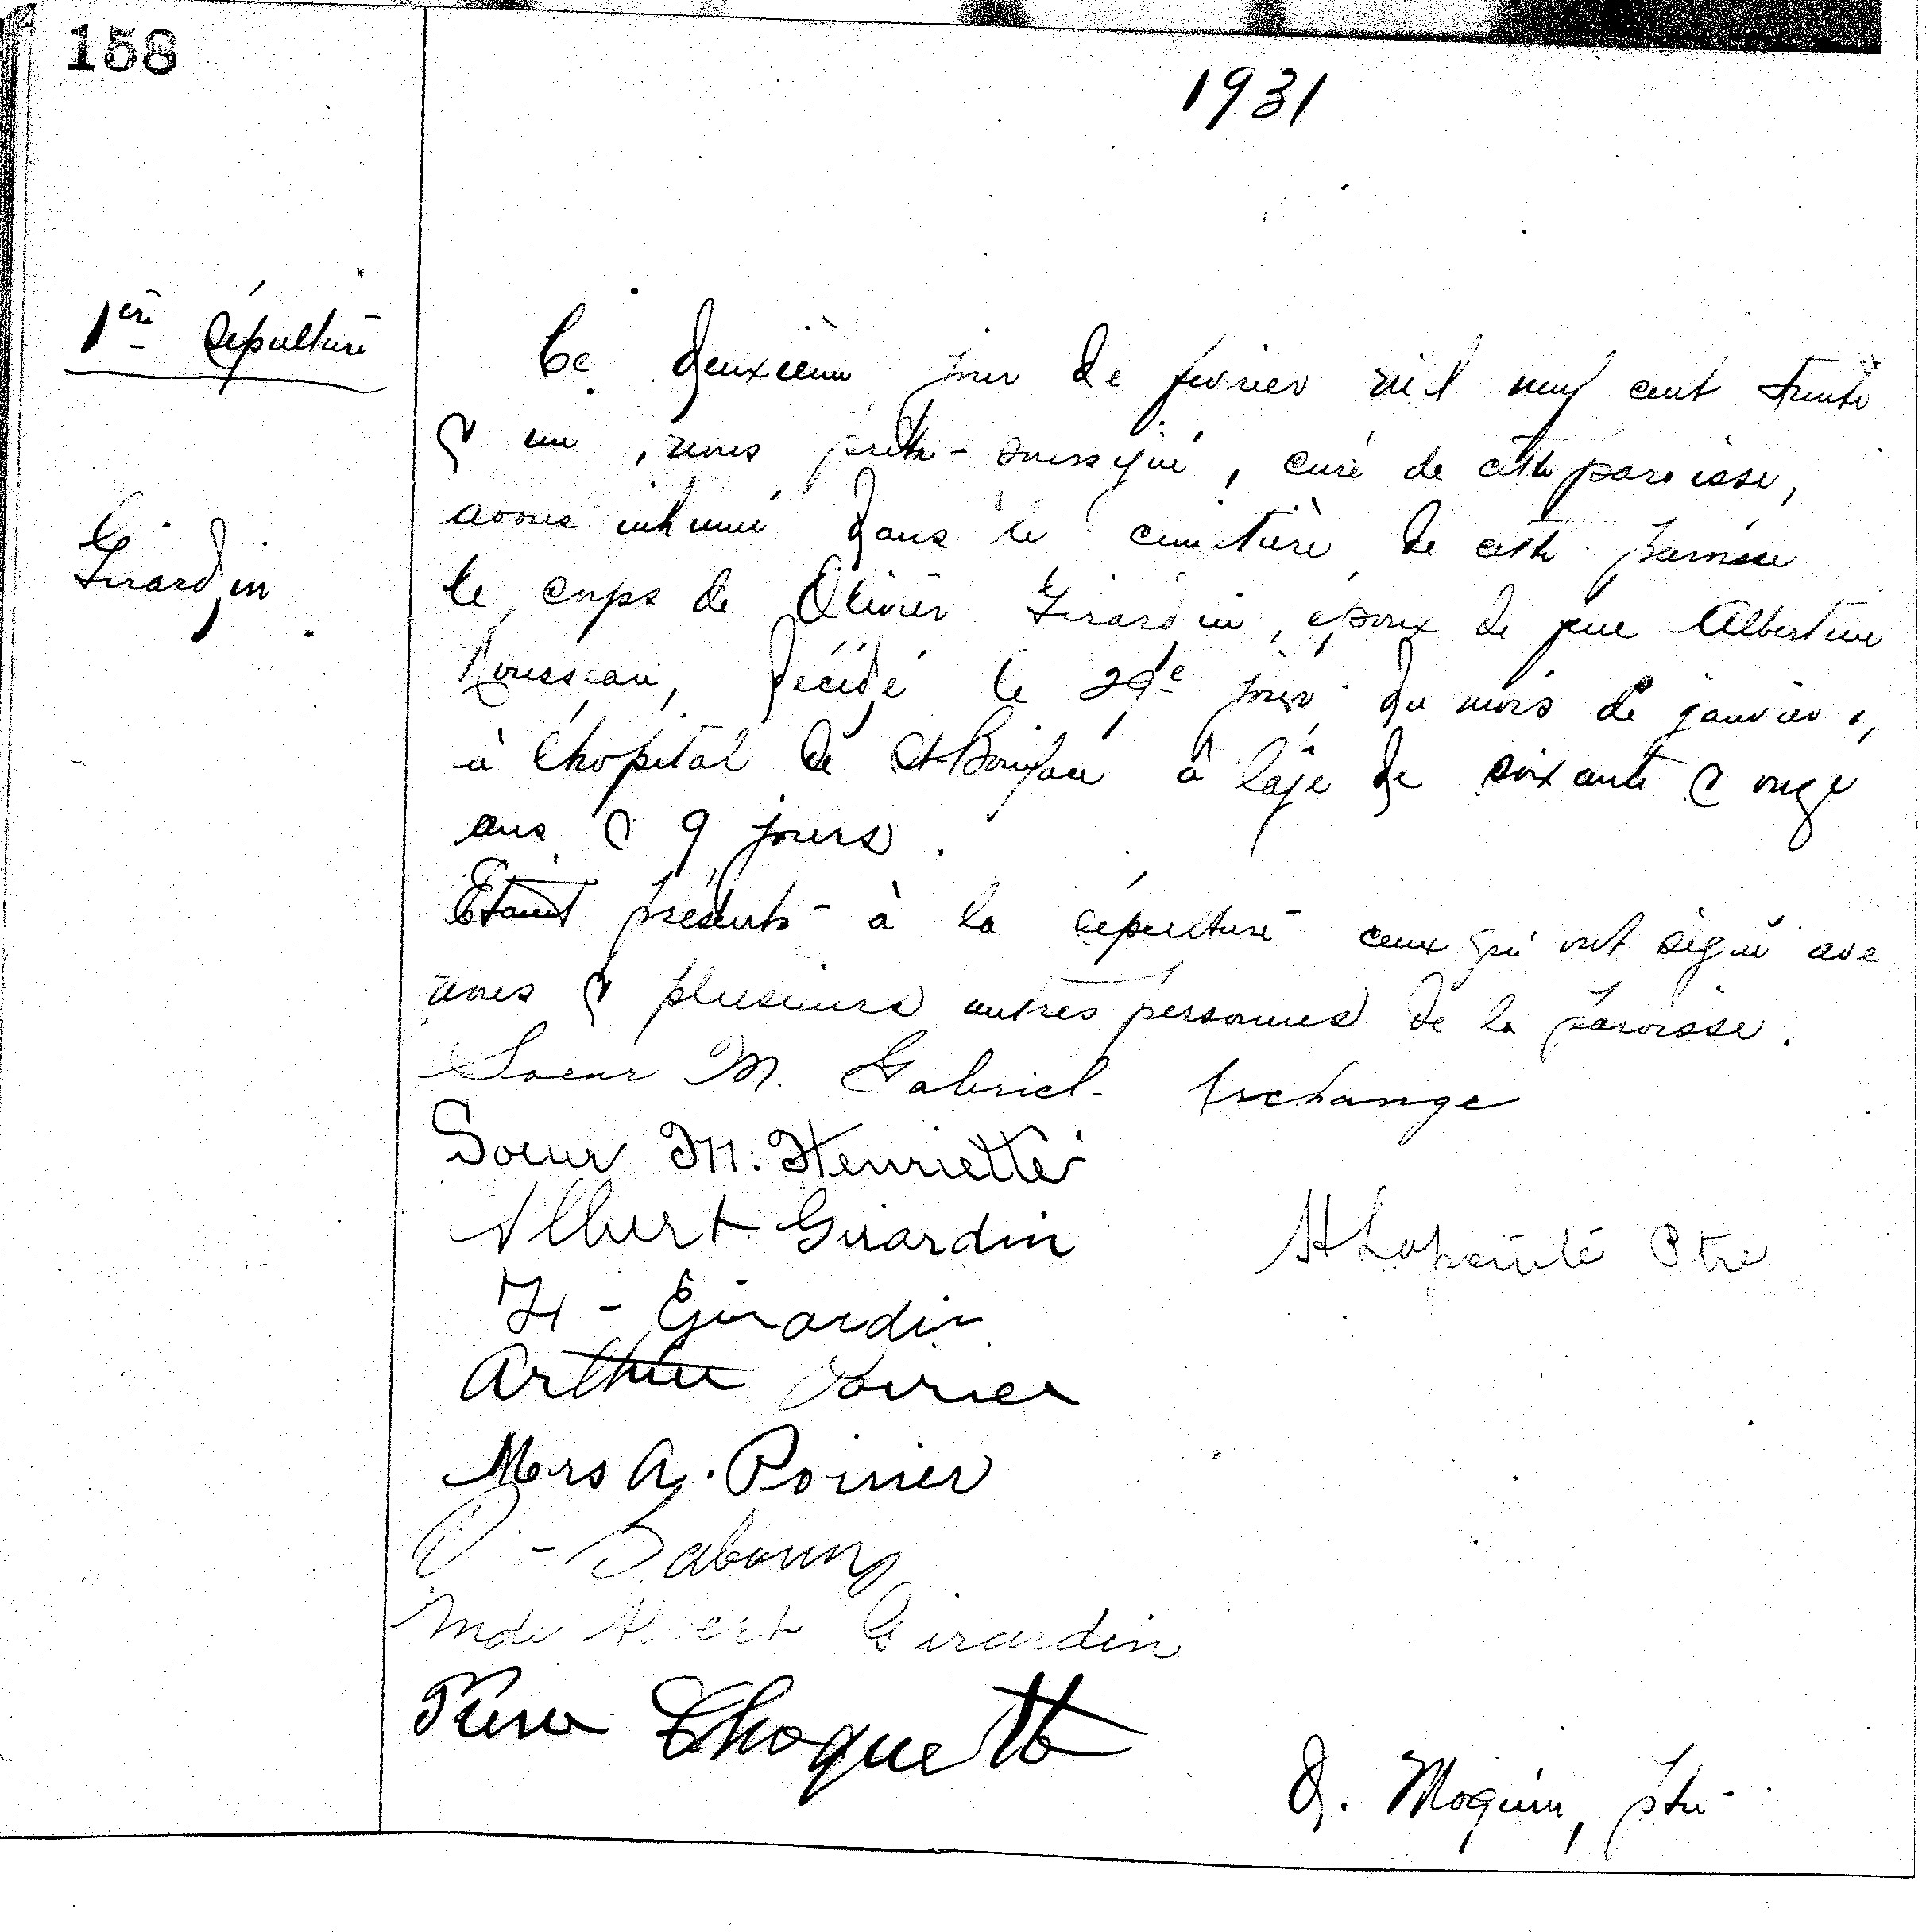 158
1931
1ère Sépulture
Ce deuxième jour de février mil neuf cent trente
& un, nous prêtre-soussigné, curé de cette paroisse,
avons inhumé dans le cimetière de cette paroisse
Girardin
le corps de Olivier Girardin, époux de feue Albertine
Rousseau, décédé le 29e jour du mois de janvier,
à l'hopital de St-Boniface à l'âge de soixante & onze
ans & 9 jours.
Etaient présents à la sépulture ceux qui ont signé avec
nous & plusieurs autres personnes de la paroisse.
Soeur M. Gabriel-Archange
Soeur M. Henriette
Albert Girardin
H Lapointe Ptre
H - Girardin
Arthur Poirier
Mers A. Poirier
O - Sabourin
Mde Albert Girardin
Choquette
Moquin, ptre